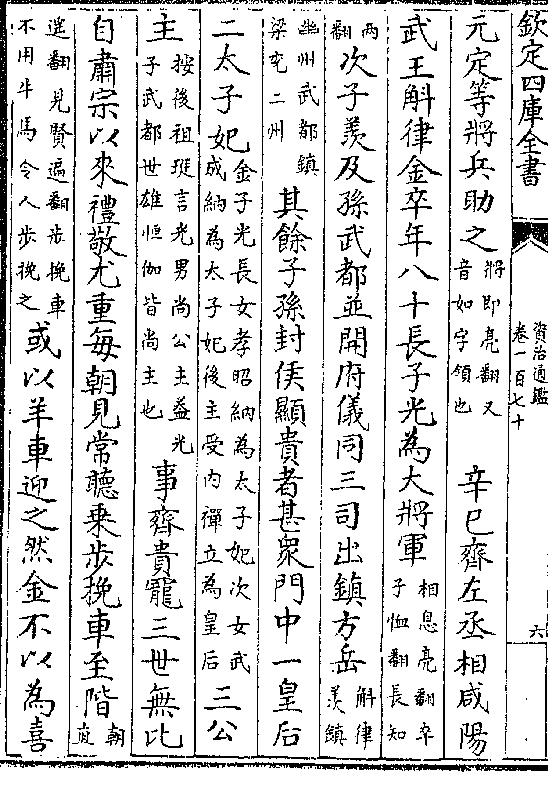 欽定四庫全書
資治通鑑
卷一百七十
六
元定等將兵助之將即亮翻又音如字領也 辛巳齊左丞相咸陽
武王斛律金卒年八十長子光為大將軍相息亮翻卒子恤翻長知
兩翻次子羨及孫武都並開府儀同三司出鎮方岳斛律羨鎮
幽州武都鎮梁屯二州其餘子孫封侯顯貴者甚衆門中一皇后
二太子妃金子光長女孝昭納為太子妃次女武成納為太子妃後主受内禪立為皇后三公
主按後祖珽言光男尚公主蓋光子武都世雄恒伽皆尚主也事齊貴寵三世無比
自肅宗以來禮敬尤重每朝見常聽乗步挽車至階朝直
遥翻見賢遍翻步挽車不用牛馬令人步挽之或以羊車迎之然金不以為喜